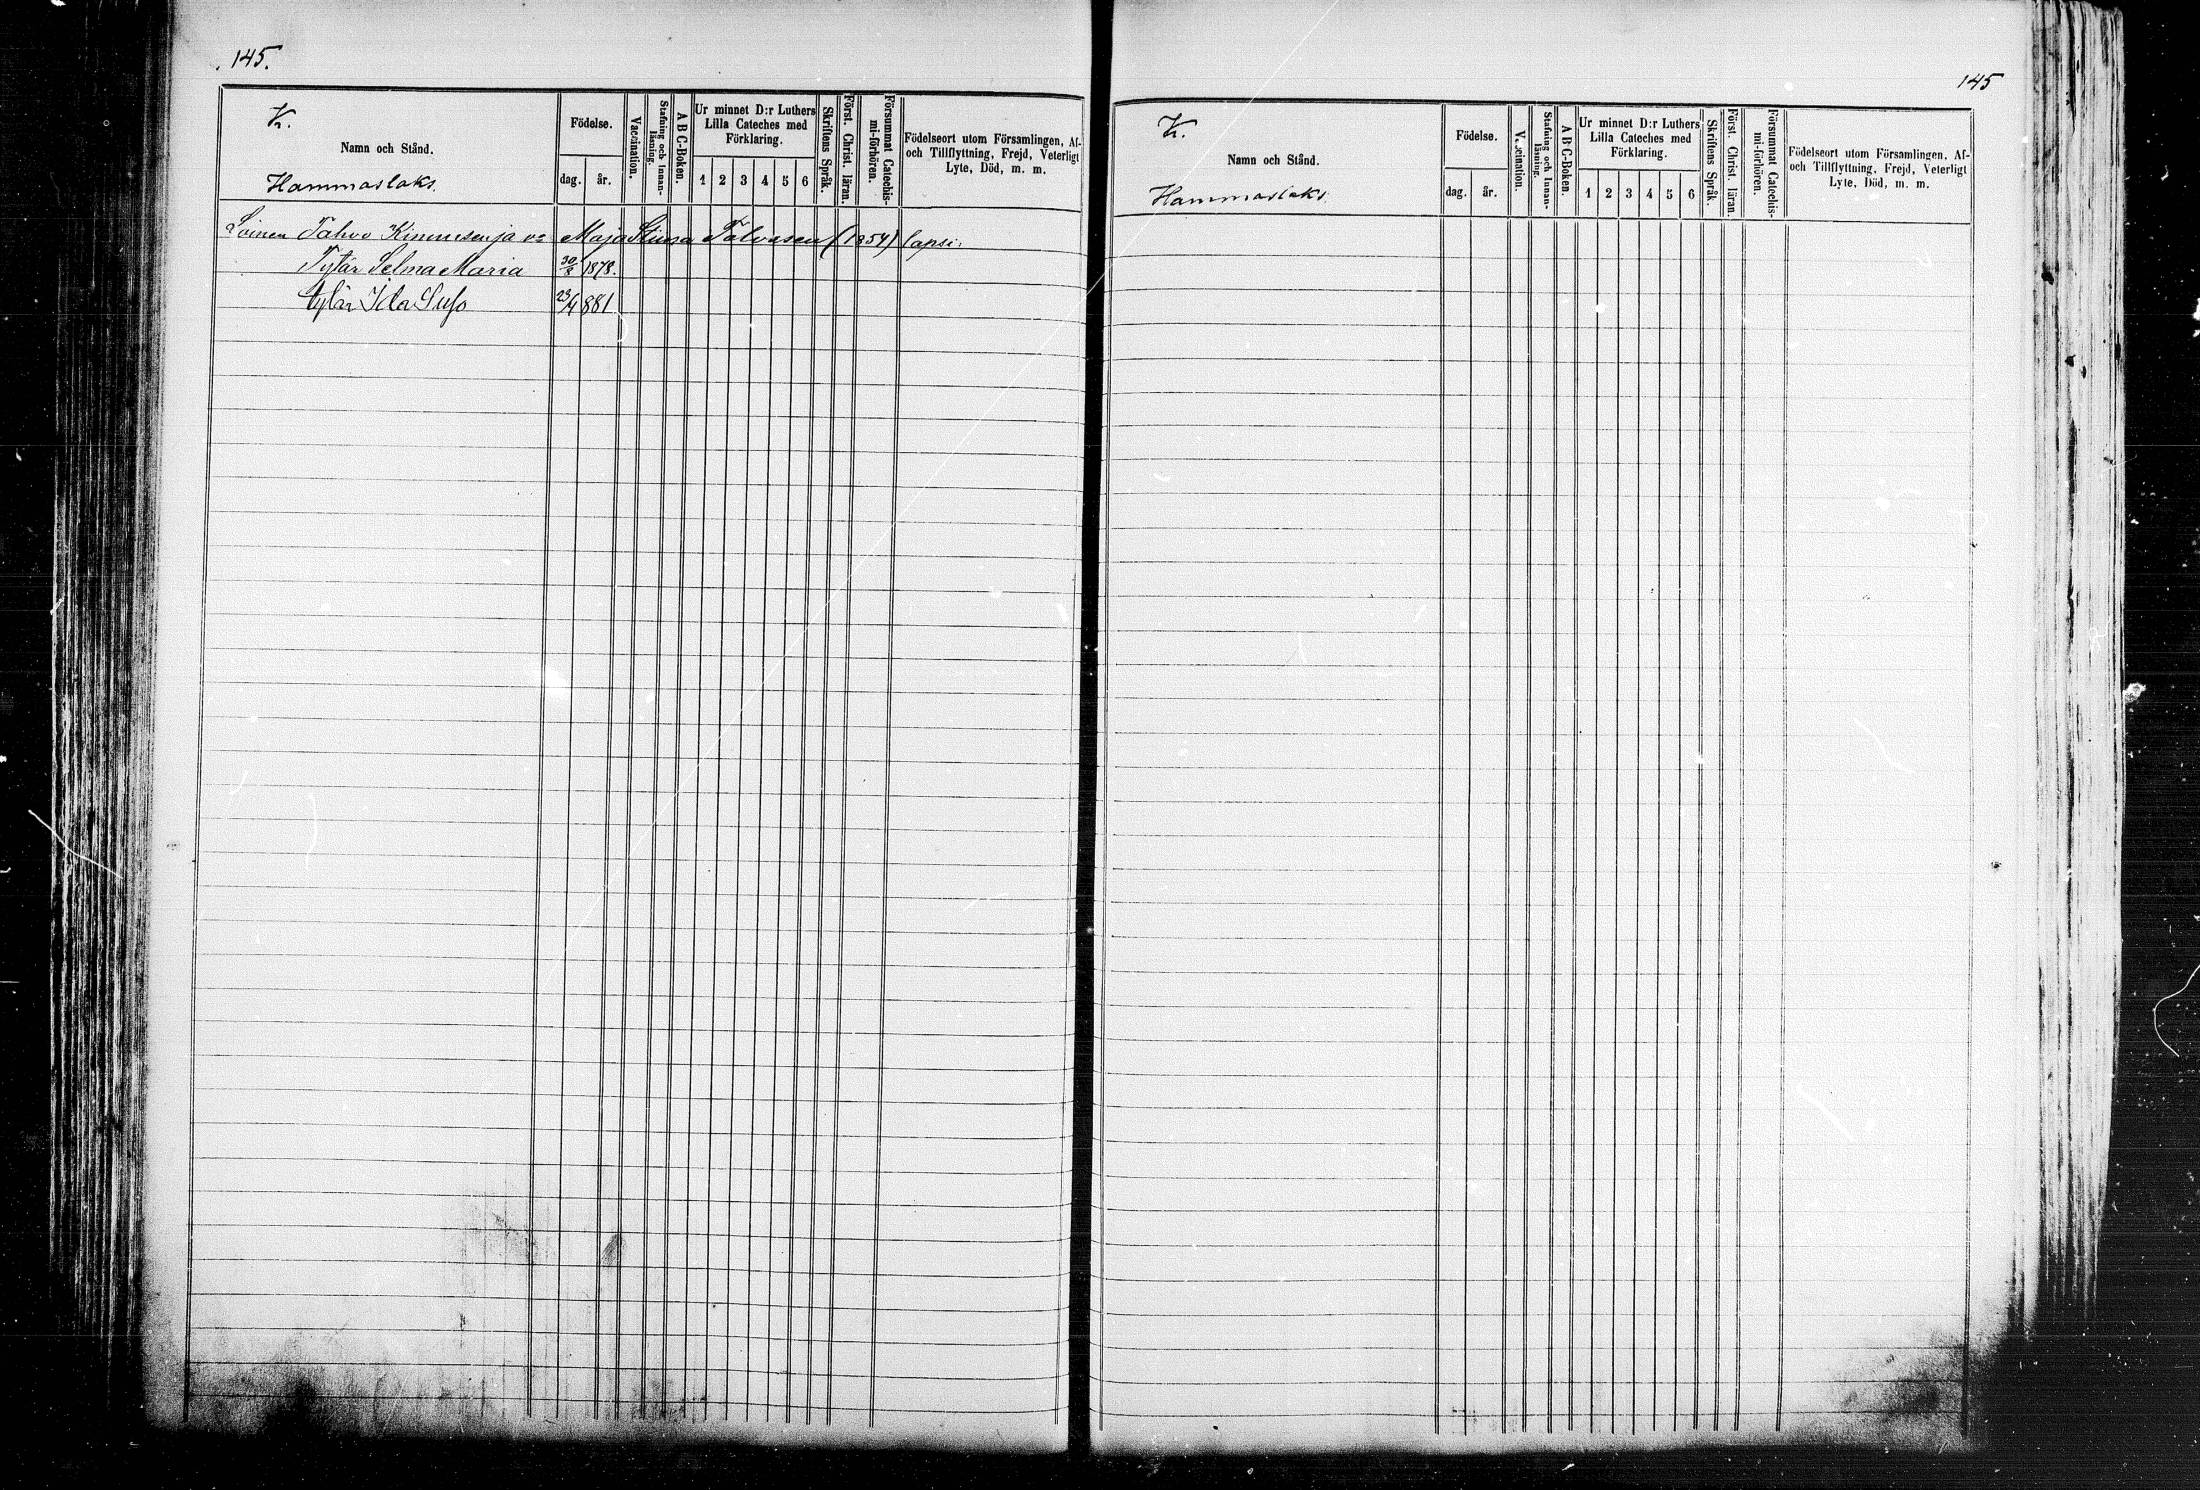 145.
K.
Namn och Stånd.
Hammaslaks.
Födelse.
dag. år.
Vaccination.
Stafning och Innanläsning.
A B C-Boken.
Ur minnet D:r Luthers
Lilla Cateches med
Förklaring.
1 2 3 4 5 6
Skriftens Språk.
Först. Christ. läran.
Försummat Catechismi-förhören.
Födelseort utom Församlingen, Af-
och Tillflyttning, Frejd, Veterligt
Lyte, Död, m. m.
Loinen Tahvo Kinnusen ja vo Maja Stiina Tolvasen (1854) lapsi:
Tytär Selma Maria 30/8 1878.
Tytär Ida Suso 23/4 881
145
K.
Namn och Stånd.
Hammaslaks.
Födelse.
dag. år.
Vaccination.
Stafning och Innanläsning.
A B C-Boken.
Ur minnet D:r Luthers
Lilla Cateches med
Förklaring.
1 2 3 4 5 6
Skriftens Språk.
Först. Christ. läran.
Försummat Catechismi-förhören.
Födelseort utom Församlingen, Af-
och Tillflyttning, Frejd, Veterligt
Lyte, Död, m. m.